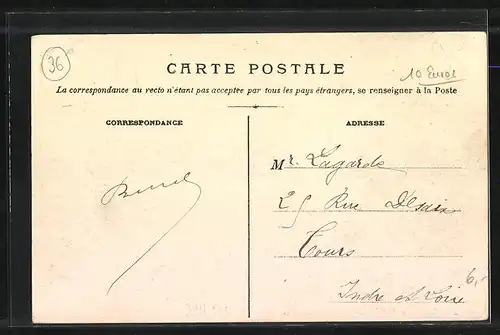 36
CARTE POSTALE
10 Euros
La correspondance au recto n'étant pas acceptée par tous les pays étrangers, se renseigner à la Poste
CORRESPONDANCE
ADRESSE
Mr. Lagarde
Rue Desaix
Tours
6,-
Indre et Loire